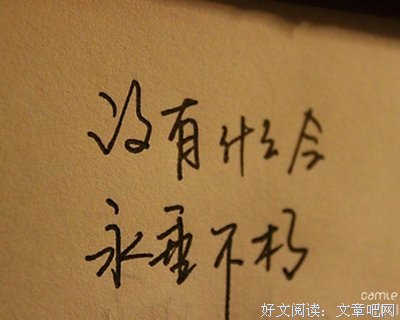 没有什么会
永垂不朽
camle
好文阅读：文章吧网